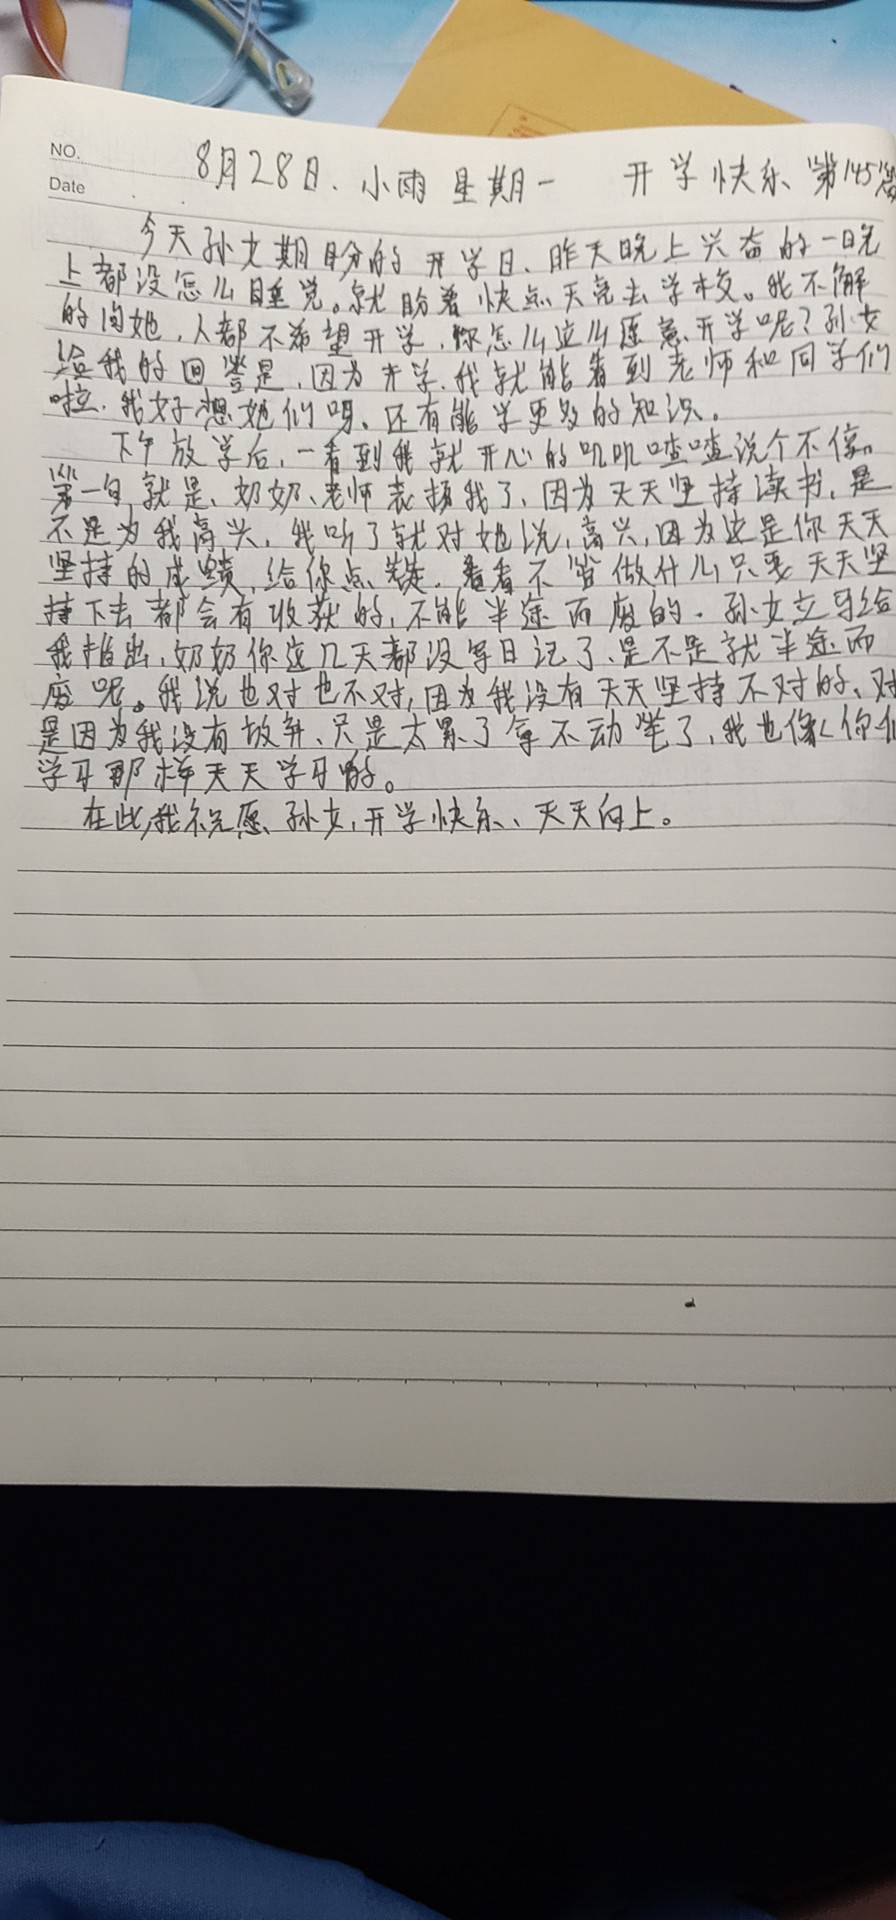 NO.
Date
8月28日、小雨 星期一 开学快乐、第145篇
今天孙女期盼的开学日、昨天晚上兴奋的一晚
上都没怎么睡觉。就盼着快点天亮去学校。我不解
的问她,人都不希望开学,你怎么这么愿意开学呢?孙女
给我的回答是,因为开学、我就能看到老师和同学们
啦、我好想她们呀、还有能学更多的知识。
下午放学后,一看到我就开心的叽叽喳喳说个不停。
第一句就是、奶奶、老师表扬我了、因为天天坚持读书、是
不是为我高兴、我听了就对她说,高兴,因为这是你天天
坚持的成绩,给你点赞、看看不管做什么只要天天坚
持下去都会有收获的,不能半途而废的、孙女立马给
我指出,奶奶你这几天都没写日记了、是不是就半途而
废呢。我说也对也不对,因为我没有天天坚持不对的、对
是因为我没有放弃、只是太累了拿不动笔了,我也像你们
学习那样天天学习的。
在此,我祝愿、孙女,开学快乐、天天向上。